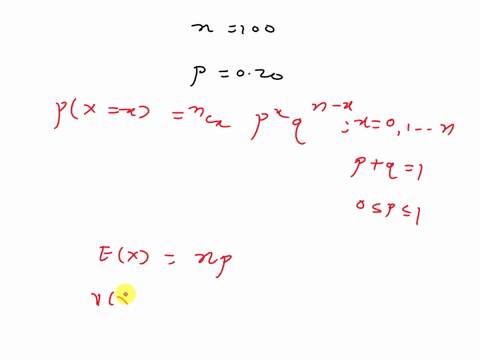 n = 100
p = 0.20
p(X = x) = nCx p^x q^(n-x) ; x = 0, 1 -- n
p + q = 1
0 ≤ p ≤ 1
E(X) = np
V(